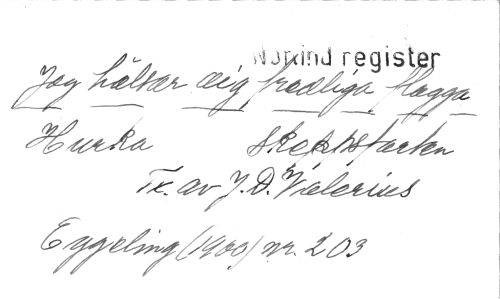 Norlind register
Jag hälsar dig fredliga flagga
Hurra skeppsfarten
Tx. av J.D. Valerius
Eggeling (1900) nr. 203